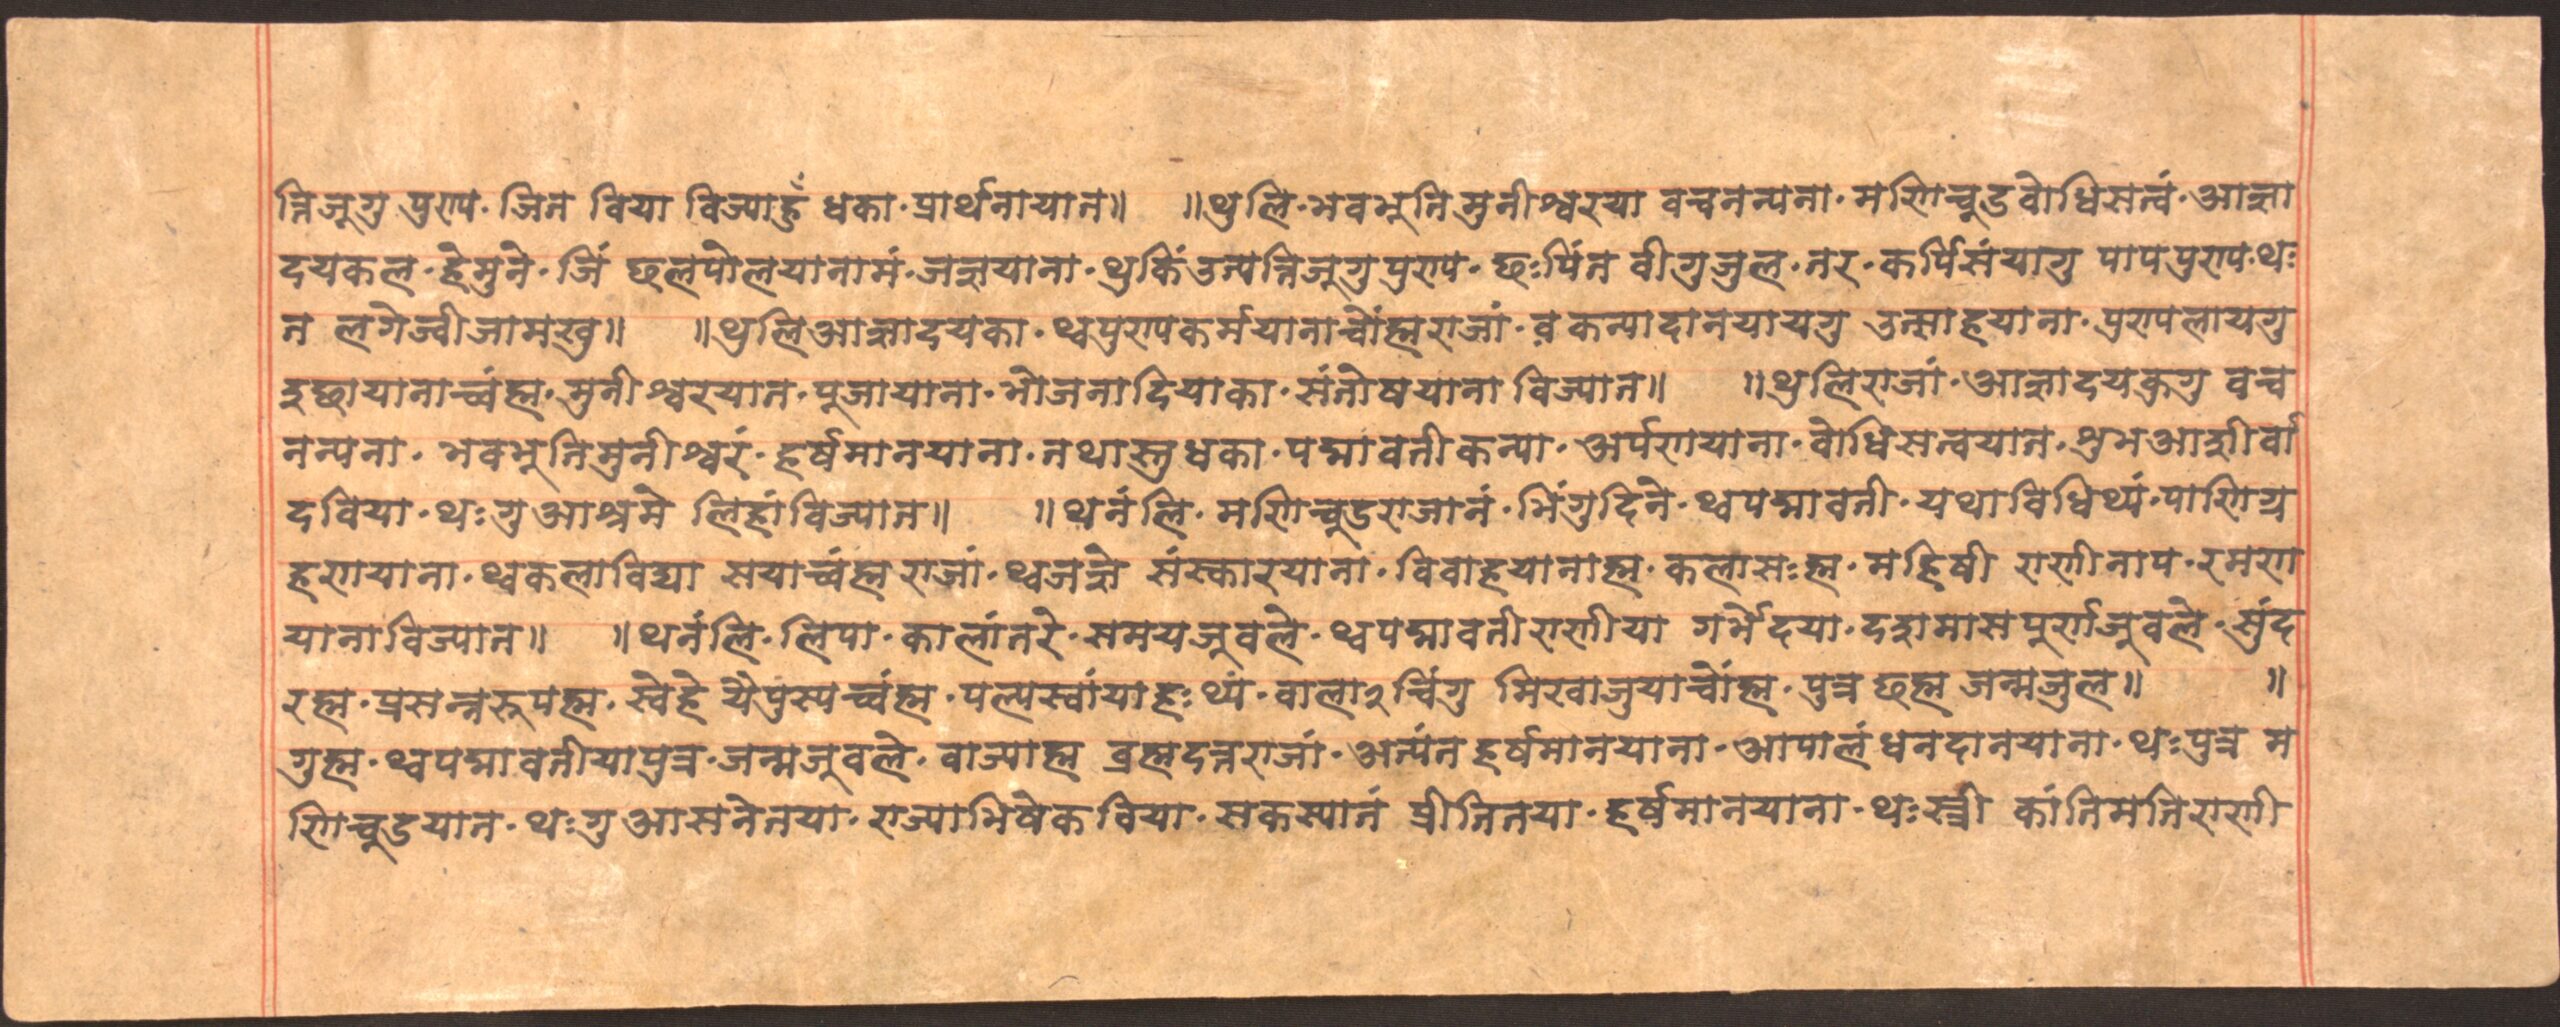 त्तिजूगु पुण्य· जित विया विज्याहुँ धका· प्रार्थनायात॥ ॥थुलि· भवभूतिमुनीश्वरया वचनन्यना· मणिचूडवोधिसत्वं· आज्ञा
दयकल· हेमुने· जिं छलपोलयानामं· जज्ञयाना· थुकिंउत्पत्तिजूगुपुण्य· छःपिंत वीगुजुल· तर· कपिंसंयागु पापपुण्य·थः
त लगेज्वीजामखु॥ ॥थुलिआज्ञादयका· थ्वपुण्यकर्मयानाच्वोंह्मराजां· व्रकन्यादानयायगु उत्साहयाना· पुण्यलायगु
इच्छायानाच्वंह्म· मुनीश्वरयात· पूजायाना· भोजनादियाका· संतोषयाना विज्यात॥ ॥थुलिराजां· आज्ञादयकुगु वच
नन्यना· भवभूतिमुनीश्वरं· हर्षमानयाना· तथास्तुधका· पद्मावतीकन्या· अर्पणयाना· वोधिसत्वयात· शुभआशीर्वा
दविया· थःगुआश्रमे लिहांविज्यात॥ ॥थनंलि· मणिचूडराजानं· भिंगुदिने· थ्वपद्मावती· यथाविधिथ्यं· पाणिग्र
हणयाना· थ्वकलाविद्या सयाच्वंह्म राजां· थ्वजज्ञे संस्कारयाना· विवाहयानाह्म· कलासःह्म· महिषी राणीनाप· रमण
यानाविज्यात॥ ॥थनंलि· लिपा· कालांतरे· समयजूवले· थ्वपद्मावतीराणीया गर्भेदया· दशमासपूर्णजूवले· सुंद
रह्म· प्रसन्नरूपह्म· स्वेहे यैपुंस्यच्वंह्म· पल्यस्वांयाहःथ्यं· वाला२चिंगु मिखाजुयाच्वोंह्म· पुत्रछह्म जन्मजुल॥ ॥
गुह्म· थ्वपद्मावतीयापुत्र· जन्मजूवले· वाज्याह्म ब्रह्मदत्तराजां· अत्यंत हर्षमानयाना· आपालं धनदानयाना· थःपुत्र म
णिचूडयात· थःगुआसनेतया· राज्याभिषेकविया· सकस्यातं प्रीतितया· हर्षमानयाना· थःस्त्री कांतिमतिराणी